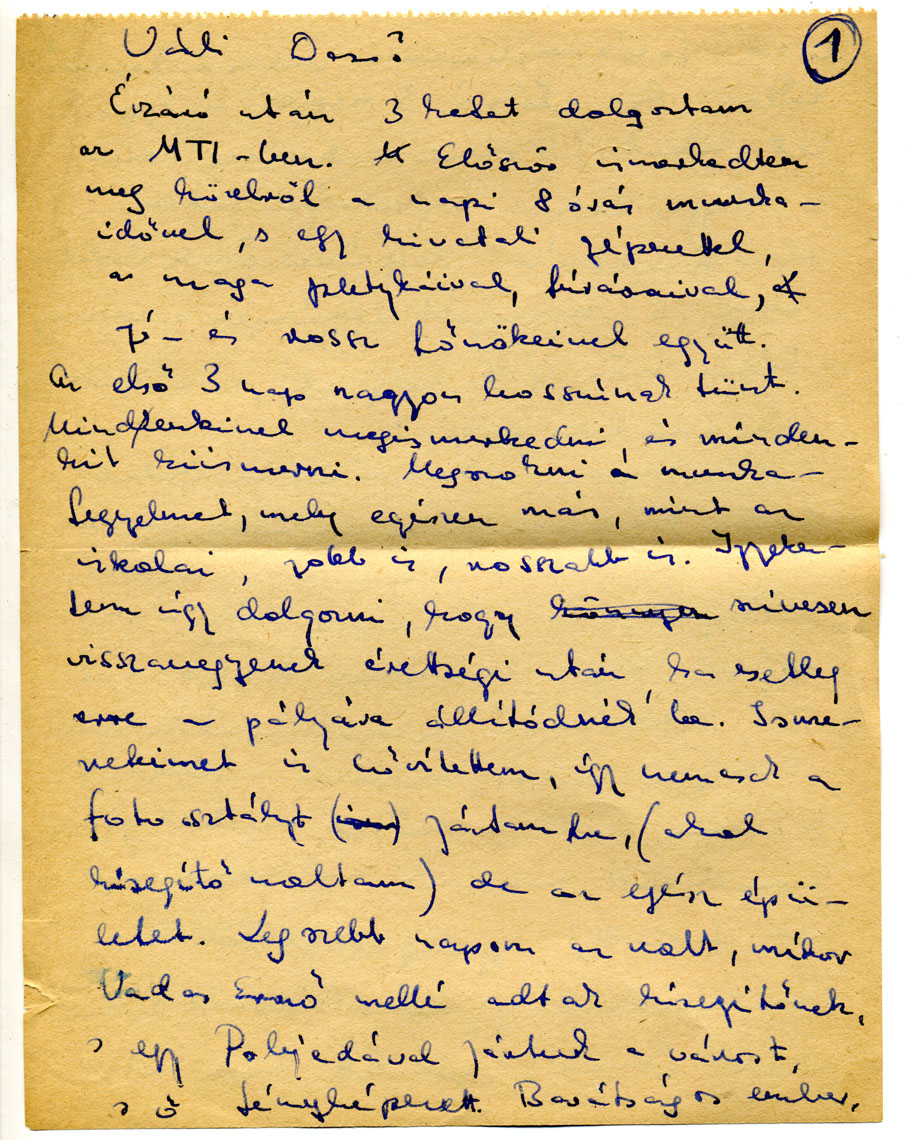 1
Évzáró után 3 hetet dolgoztam
az MTI-ben. Először ismerkedtem
meg közelről a napi 8 órás munka-
idővel, s egy hivatali gépezettel,
az maga pletykáival, fúrásaival,
jó- és rossz főnökeivel együtt.
Az első 3 nap nagyon hosszúnak tűnt.
Mindenkivel megismerkedni, és minden-
kit kiismerni. Megszokni a munka-
fegyelmet, mely egészen más, mint az
iskolai, jobb is, rosszabb is. Igyekez-
tem úgy dolgozni, hogy könnyen szívesen
visszavegyenek érettségi után, ha esetleg
erre a pályára állítódnék be. Isme-
reteimet is bővítettem, így nemcsak a
foto osztályt jártam be, (ahol
kisegítő voltam) de az egész épü-
letet. Legszebb napom az volt, mikor
Vadas Ernő mellé adtak kisegítőnek,
s egy Pobjedával jártuk a várost,
s ő fényképezett. Barátságos ember,